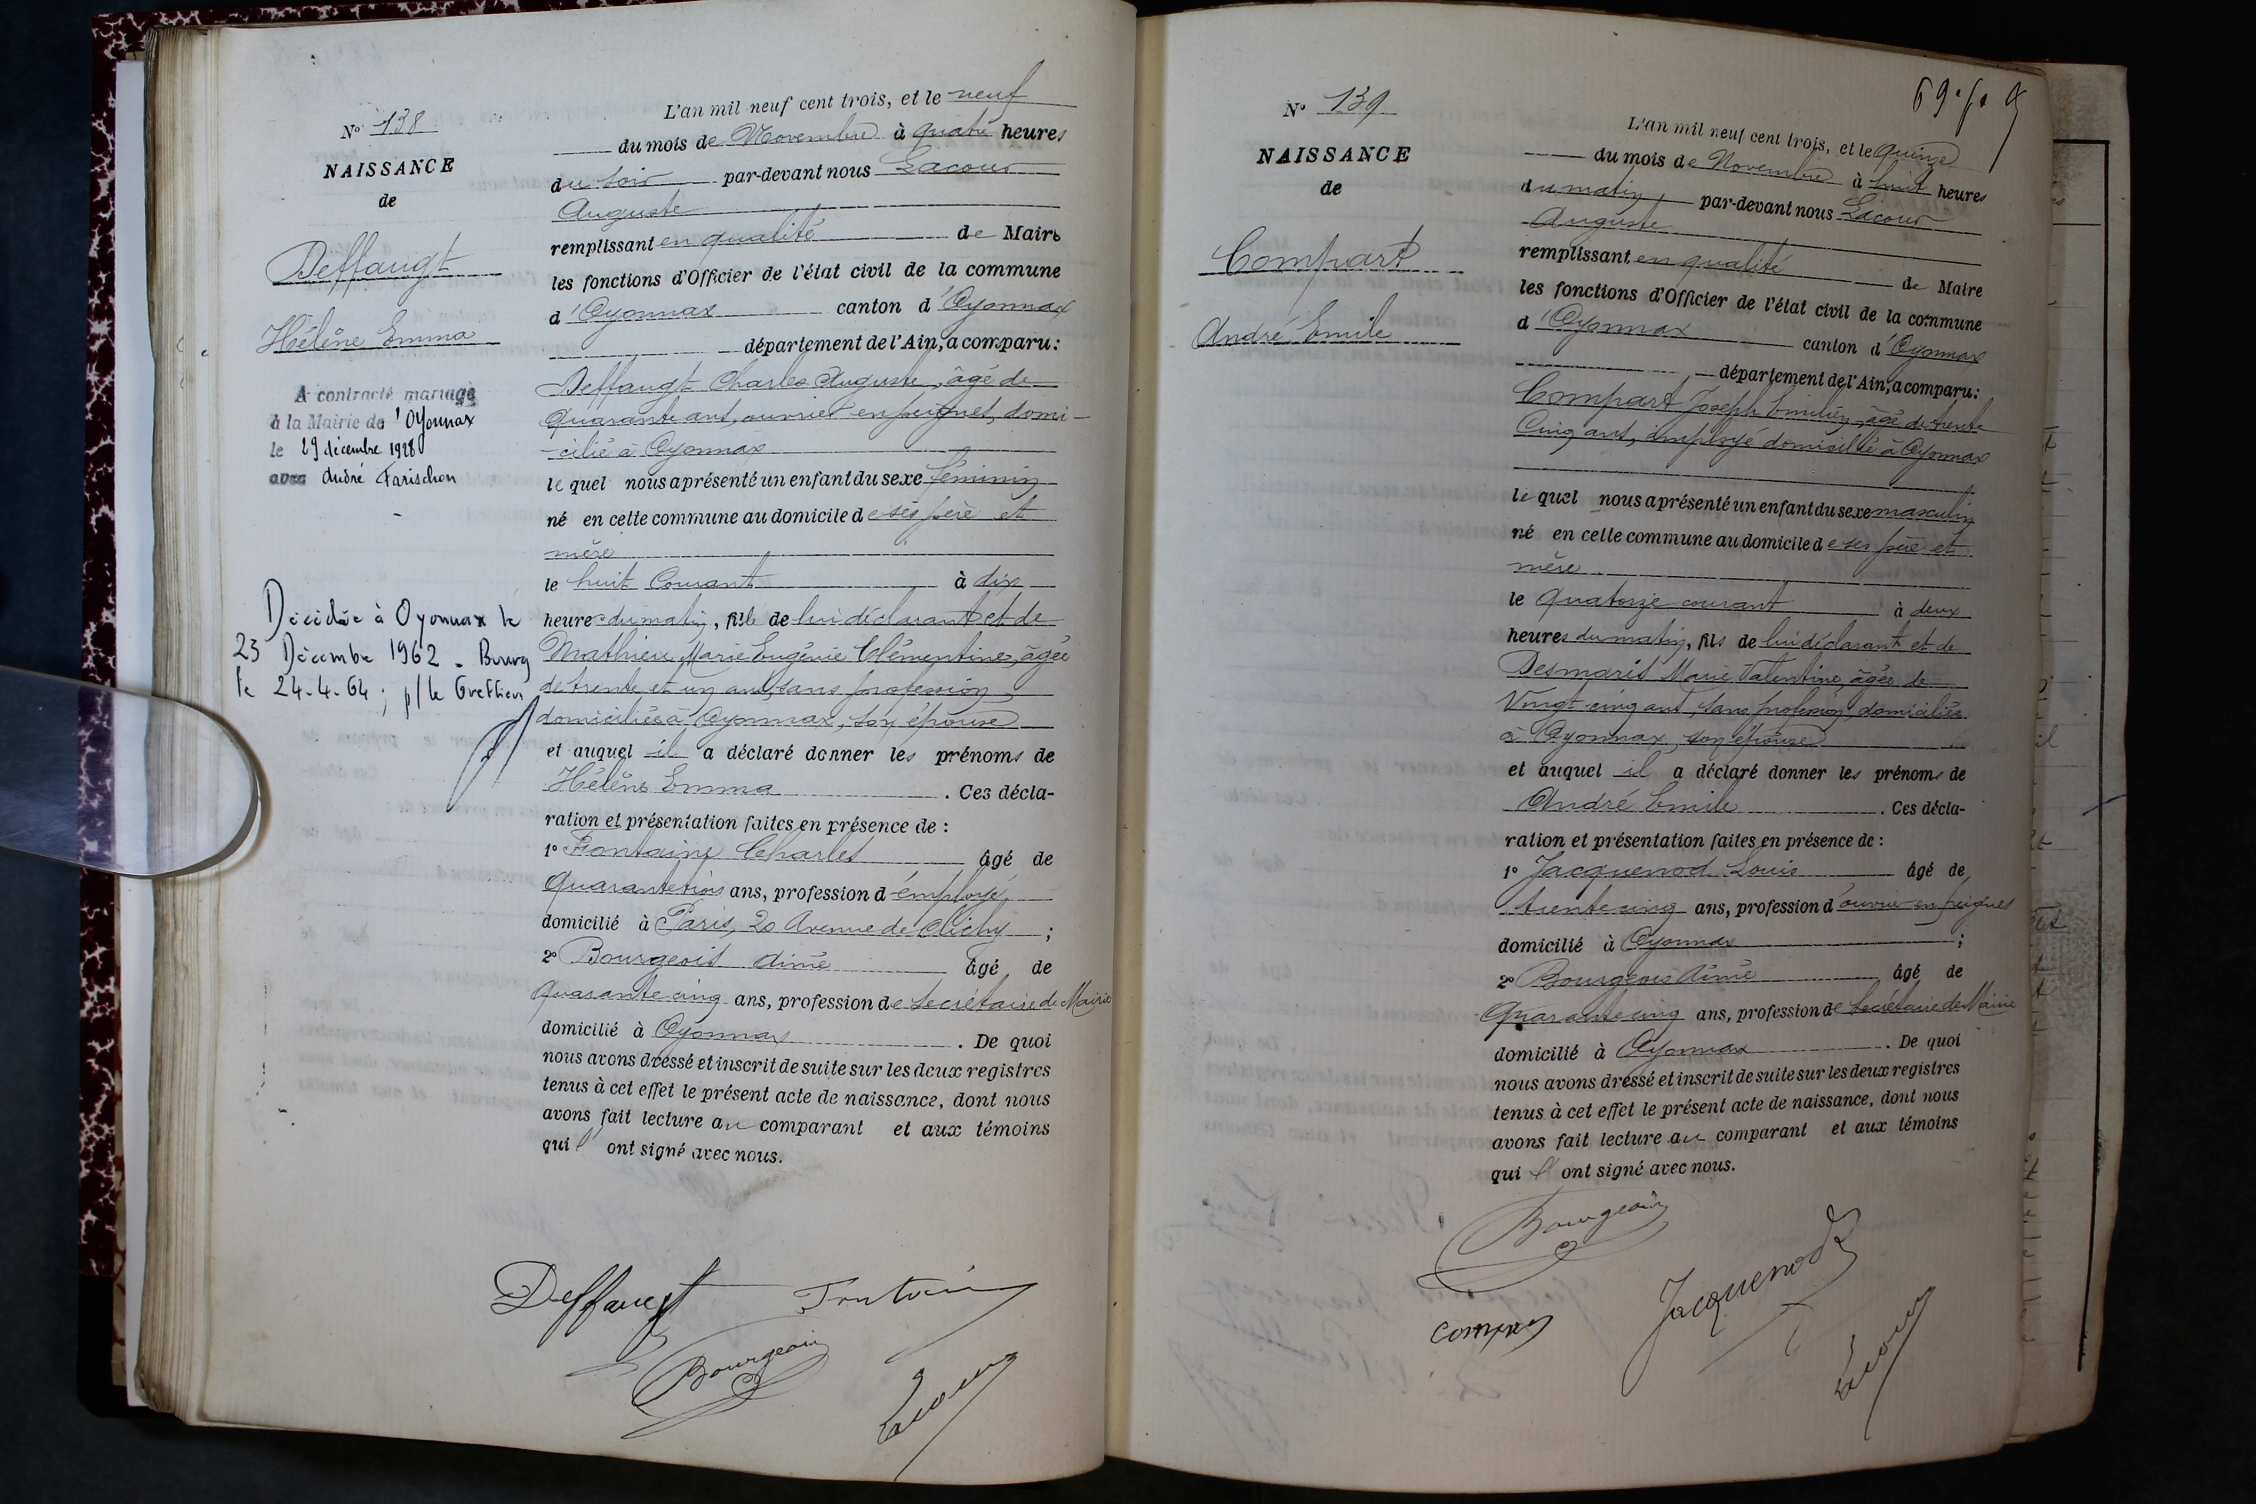 N° 138
NAISSANCE
de
Deffaugt
Hélène Emma
A contracté mariage
à la Mairie de 'Oyonnax
le 29 décembre 1928
avec André Farischon
Décédée à Oyonnax le
23 Décembre 1962 - Bourg
le 24-4-64 ; p/le Greffier
L'an mil neuf cent trois, et le neuf
du mois de Novembre à quatre heures
du soir par-devant nous Lacour
Auguste
remplissant en qualité de Maire
les fonctions d'Officier de l'état civil de la commune
d'Oyonnax canton d'Oyonnax
département de l'Ain, a comparu :
Deffaugt Charles Auguste, âgé de
quarante ans, ouvrier en peignes, domi-
cilié à Oyonnax
lequel nous a présenté un enfant du sexe féminin
né en cette commune au domicile de ses père et
mère
le huit Courant à dix
heures du matin, fille de lui déclarant et de
Mathieu Marie Eugénie Clémentine, âgée
de trente et un ans, sans profession,
domiciliée à Oyonnax, son épouse
et auquel il a déclaré donner les prénoms de
Hélène Emma . Ces décla-
ration et présentation faites en présence de :
1° Fontaine Charles âgé de
quarante trois ans, profession d'employé,
domicilié à Paris, 20 Avenue de Clichy ;
2° Bourgeois Aimé âgé de
quarante cinq ans, profession de secrétaire de Mairie
domicilié à Oyonnax . De quoi
nous avons dressé et inscrit de suite sur les deux registres
tenus à cet effet le présent acte de naissance, dont nous
avons fait lecture au comparant et aux témoins
qui l' ont signé avec nous.
Deffaugt Fontaine
Bourgeois
Lacour
69e fo
N° 139
NAISSANCE
de
Compart
André Emile
L'an mil neuf cent trois, et le quinze
du mois de Novembre à huit heures
du matin par-devant nous Lacour
Auguste
remplissant en qualité de Maire
les fonctions d'Officier de l'état civil de la commune
d'Oyonnax canton d'Oyonnax
département de l'Ain, a comparu :
Compart Joseph Emilien, âgé de trente
Cinq ans, employé domicilié à Oyonnax
lequel nous a présenté un enfant du sexe masculin
né en cette commune au domicile de ses père et
mère
le quatorze courant à deux
heures du matin, fils de lui déclarant et de
Desmaris Marie Valentine, âgée de
Vingt cinq ans, sans profession, domiciliée
à Oyonnax, son épouse
et auquel il a déclaré donner les prénoms de
André Emile . Ces décla-
ration et présentation faites en présence de :
1° Jacquenod Louis âgé de
trente cinq ans, profession d'ouvrier en peignes
domicilié à Oyonnax ;
2° Bourgeois Aimé âgé de
quarante cinq ans, profession de Secrétaire de Mairie
domicilié à Oyonnax . De quoi
nous avons dressé et inscrit de suite sur les deux registres
tenus à cet effet le présent acte de naissance, dont nous
avons fait lecture au comparant et aux témoins
qui l' ont signé avec nous.
Bourgeois
Jacquenod
Compart
Lacour